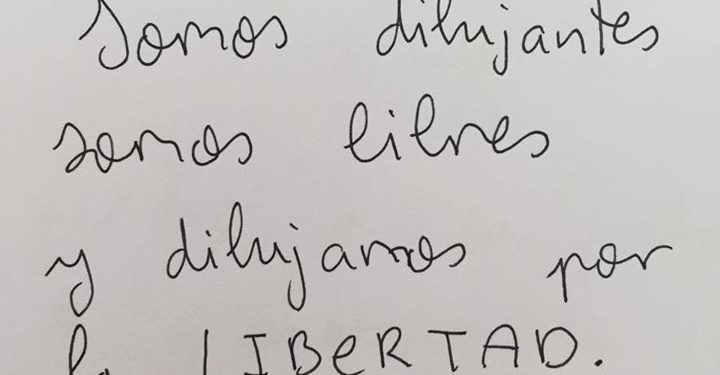 Somos dibujantes
somos libres
y dibujamos por
la LIBERTAD.